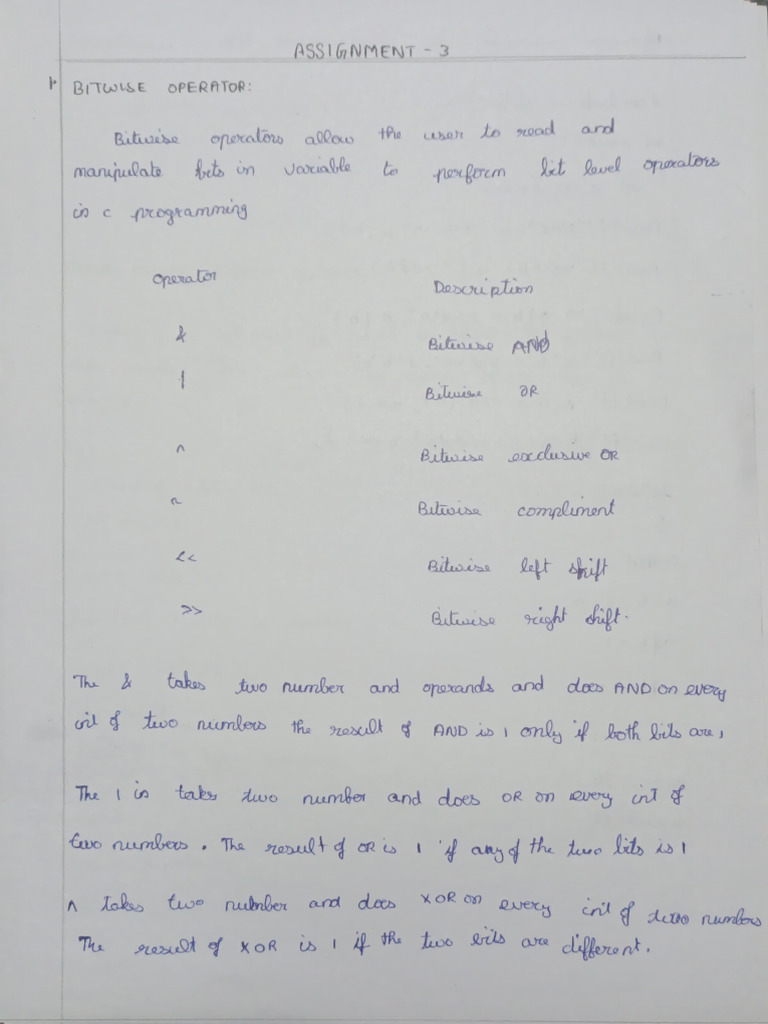 ASSIGNMENT - 3
1. BITWISE OPERATOR:
Bitwise operators allow the user to read and
manipulate bits in variable to perform bit level operators
in c programming
Operator Description
& Bitwise AND
| Bitwise OR
^ Bitwise exclusive OR
~ Bitwise compliment
<< Bitwise left shift
>> Bitwise right shift.
The & takes two number and operands and does AND on every
int of two numbers the result of AND is 1 only if both bits are 1
The | in takes two number and does OR on every int of
two numbers. The result of OR is 1 if any of the two bits is 1
^ takes two number and does XOR on every int of two numbers
The result of XOR is 1 if the two bits are different.